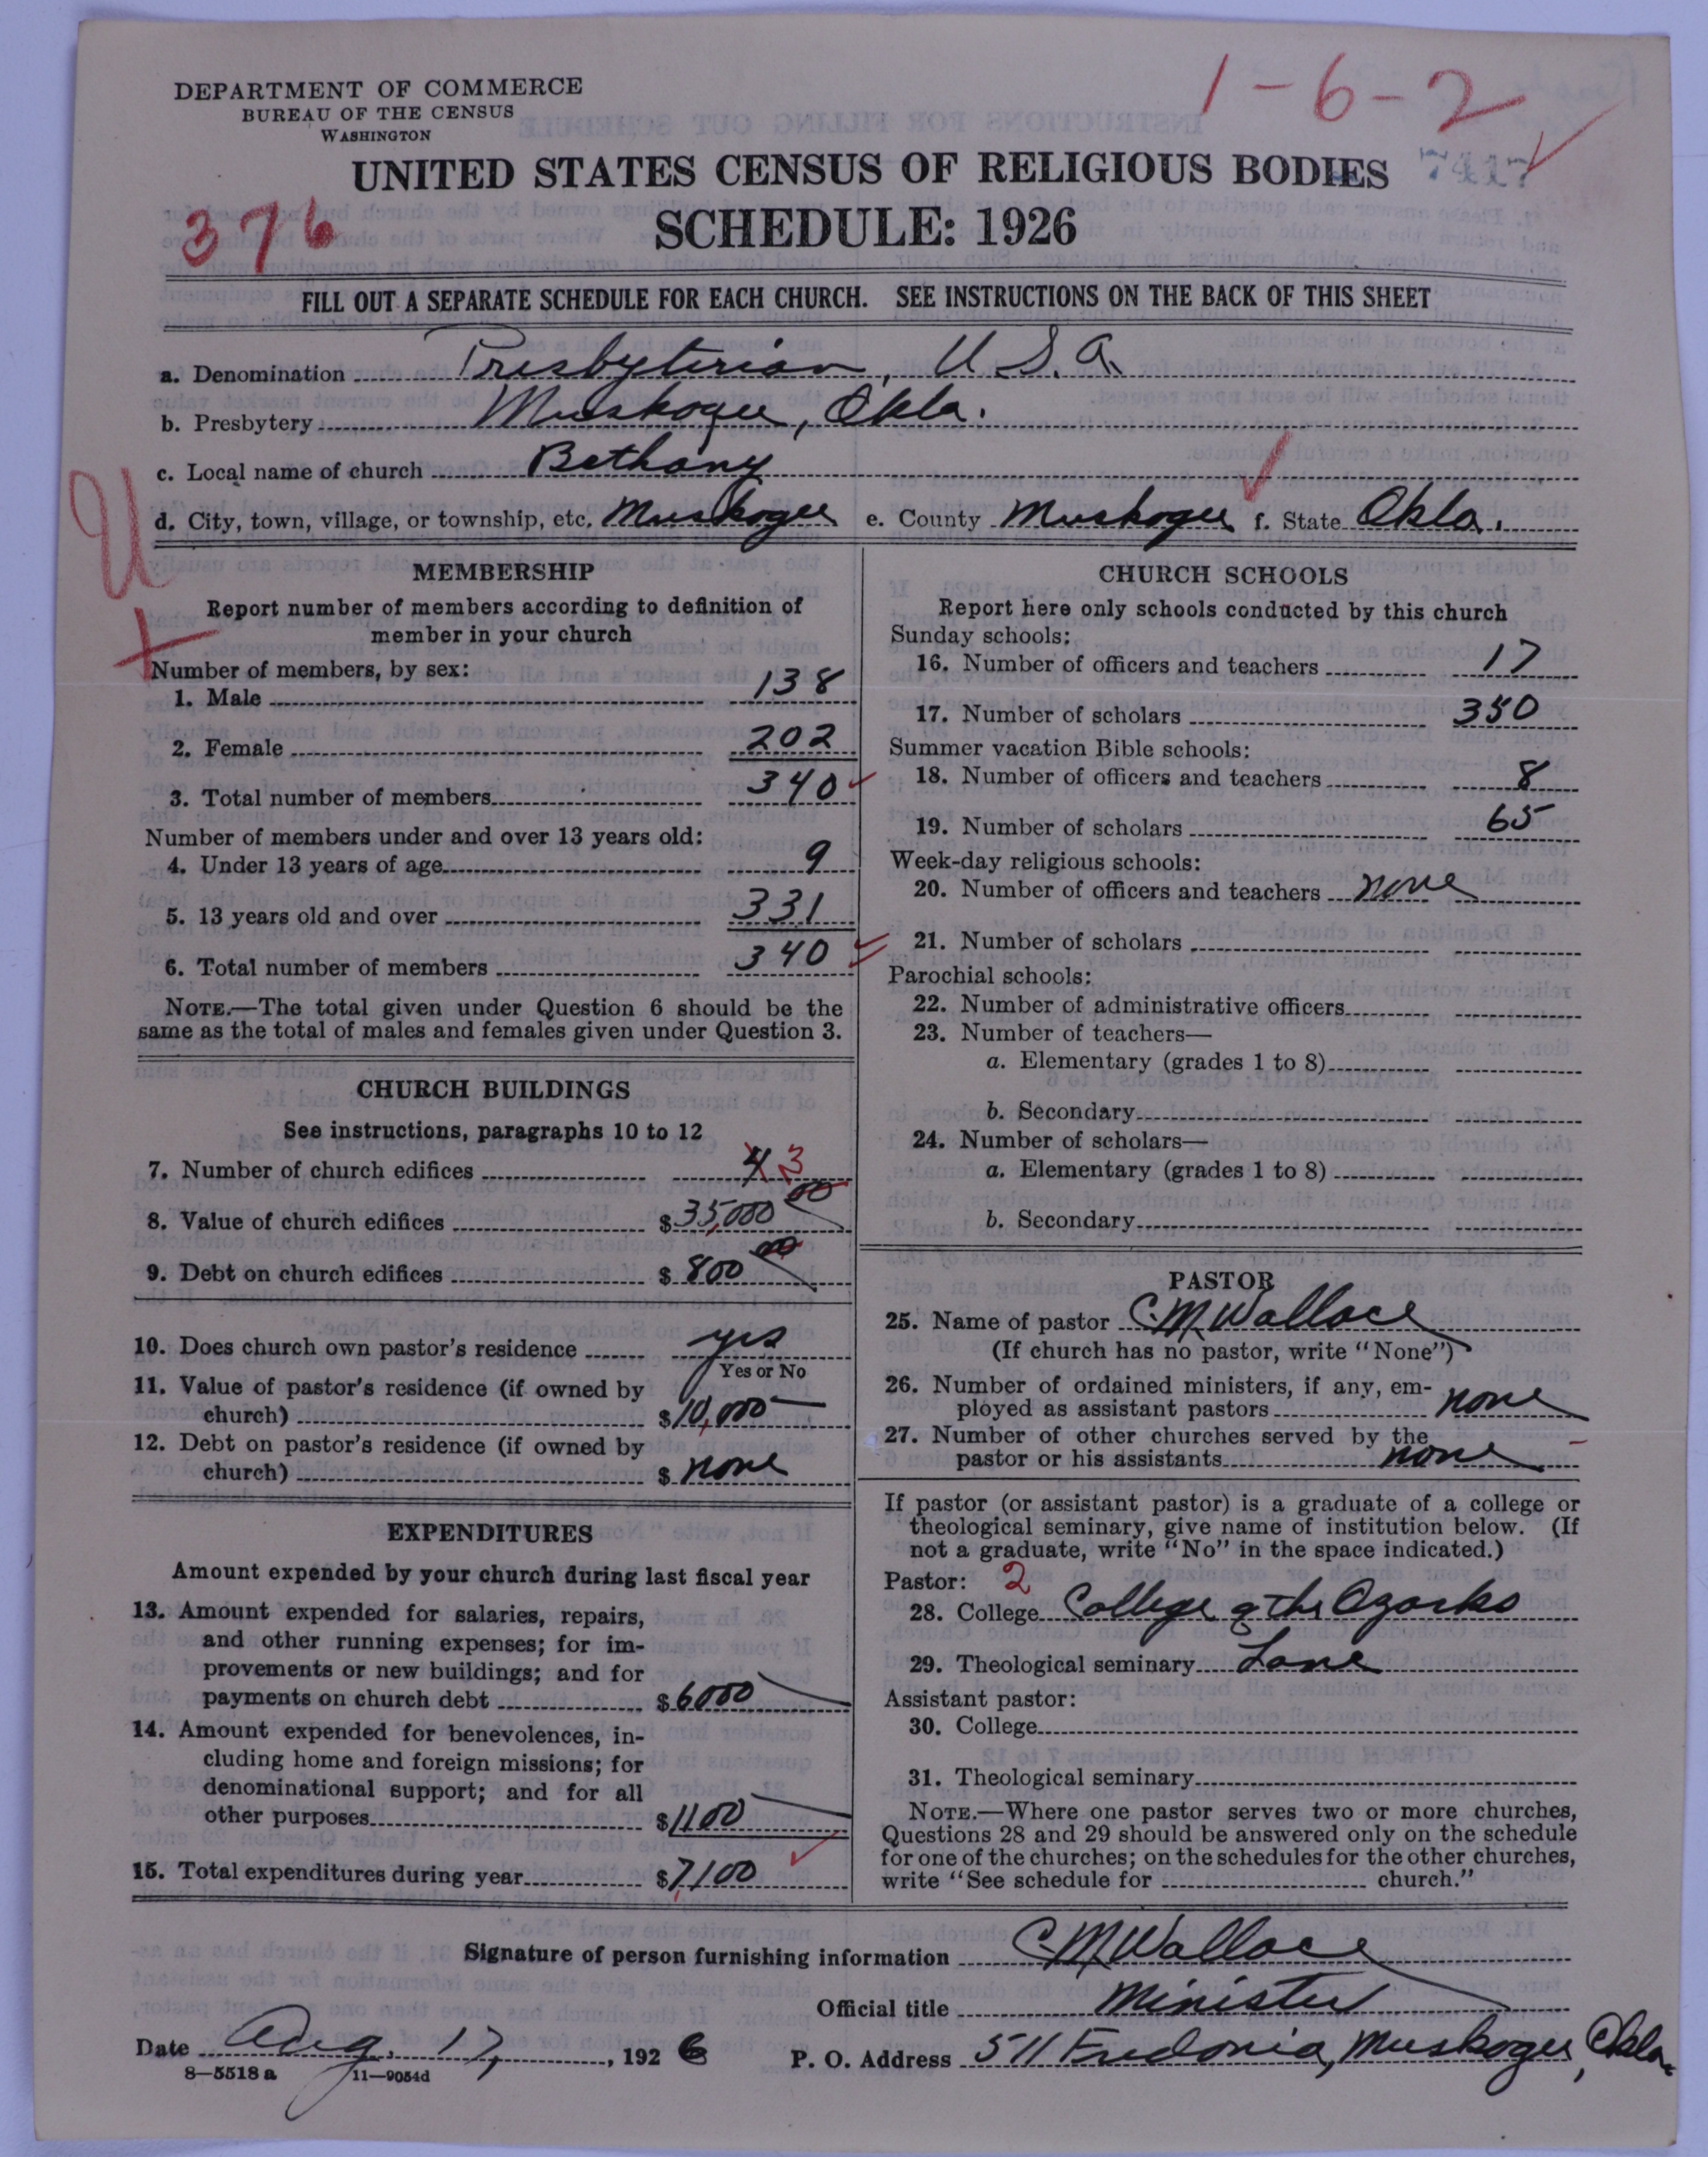 DEPARTMENT OF COMMERCE
BUREAU OF THE CENSUS
WASHINGTON
1-6-2
UNITED STATES CENSUS OF RELIGIOUS BODIES
376
SCHEDULE: 1926
FILL OUT A SEPARATE SCHEDULE FOR EACH CHURCH. SEE INSTRUCTIONS ON THE BACK OF THIS SHEET
a. Denomination Presbyterian, U.S.A.
b. Presbytery Muskogee, Okla.
c. Local name of church Bethany
d. City, town, village, or township, etc. Muskogee e. County Muskogee f. State Okla.
U
MEMBERSHIP
Report number of members according to definition of
member in your church
Number of members, by sex:
1. Male 138
2. Female 202
3. Total number of members 340
Number of members under and over 13 years old:
4. Under 13 years of age 9
5. 13 years old and over 331
6. Total number of members 340
NOTE.—The total given under Question 6 should be the
same as the total of males and females given under Question 3.
CHURCH BUILDINGS
See instructions, paragraphs 10 to 12
7. Number of church edifices 4 3
8. Value of church edifices $ 35,000 00
9. Debt on church edifices $ 800 00
10. Does church own pastor's residence yes
Yes or No
11. Value of pastor's residence (if owned by
church) $ 10,000
12. Debt on pastor's residence (if owned by
church) $ none
EXPENDITURES
Amount expended by your church during last fiscal year
13. Amount expended for salaries, repairs,
and other running expenses; for im-
provements or new buildings; and for
payments on church debt $ 6000
14. Amount expended for benevolences, in-
cluding home and foreign missions; for
denominational support; and for all
other purposes $ 1100
15. Total expenditures during year $ 7,100
CHURCH SCHOOLS
Report here only schools conducted by this church
Sunday schools:
16. Number of officers and teachers 17
17. Number of scholars 350
Summer vacation Bible schools:
18. Number of officers and teachers 8
19. Number of scholars 65
Week-day religious schools:
20. Number of officers and teachers none
21. Number of scholars
Parochial schools:
22. Number of administrative officers
23. Number of teachers—
a. Elementary (grades 1 to 8)
b. Secondary
24. Number of scholars—
a. Elementary (grades 1 to 8)
b. Secondary
PASTOR
25. Name of pastor C. M. Wallace
(If church has no pastor, write "None")
26. Number of ordained ministers, if any, em-
ployed as assistant pastors none
27. Number of other churches served by the
pastor or his assistants none
If pastor (or assistant pastor) is a graduate of a college or
theological seminary, give name of institution below. (If
not a graduate, write "No" in the space indicated.)
Pastor: 2
28. College College of the Ozarks
29. Theological seminary Lane
Assistant pastor:
30. College
31. Theological seminary
NOTE.—Where one pastor serves two or more churches,
Questions 28 and 29 should be answered only on the schedule
for one of the churches; on the schedules for the other churches,
write "See schedule for church."
Signature of person furnishing information C. M. Wallace
Official title Minister
Date Aug. 17, 1926 P. O. Address 511 Fredonia, Muskogee, Okla.
8—5518 a 11—9054d